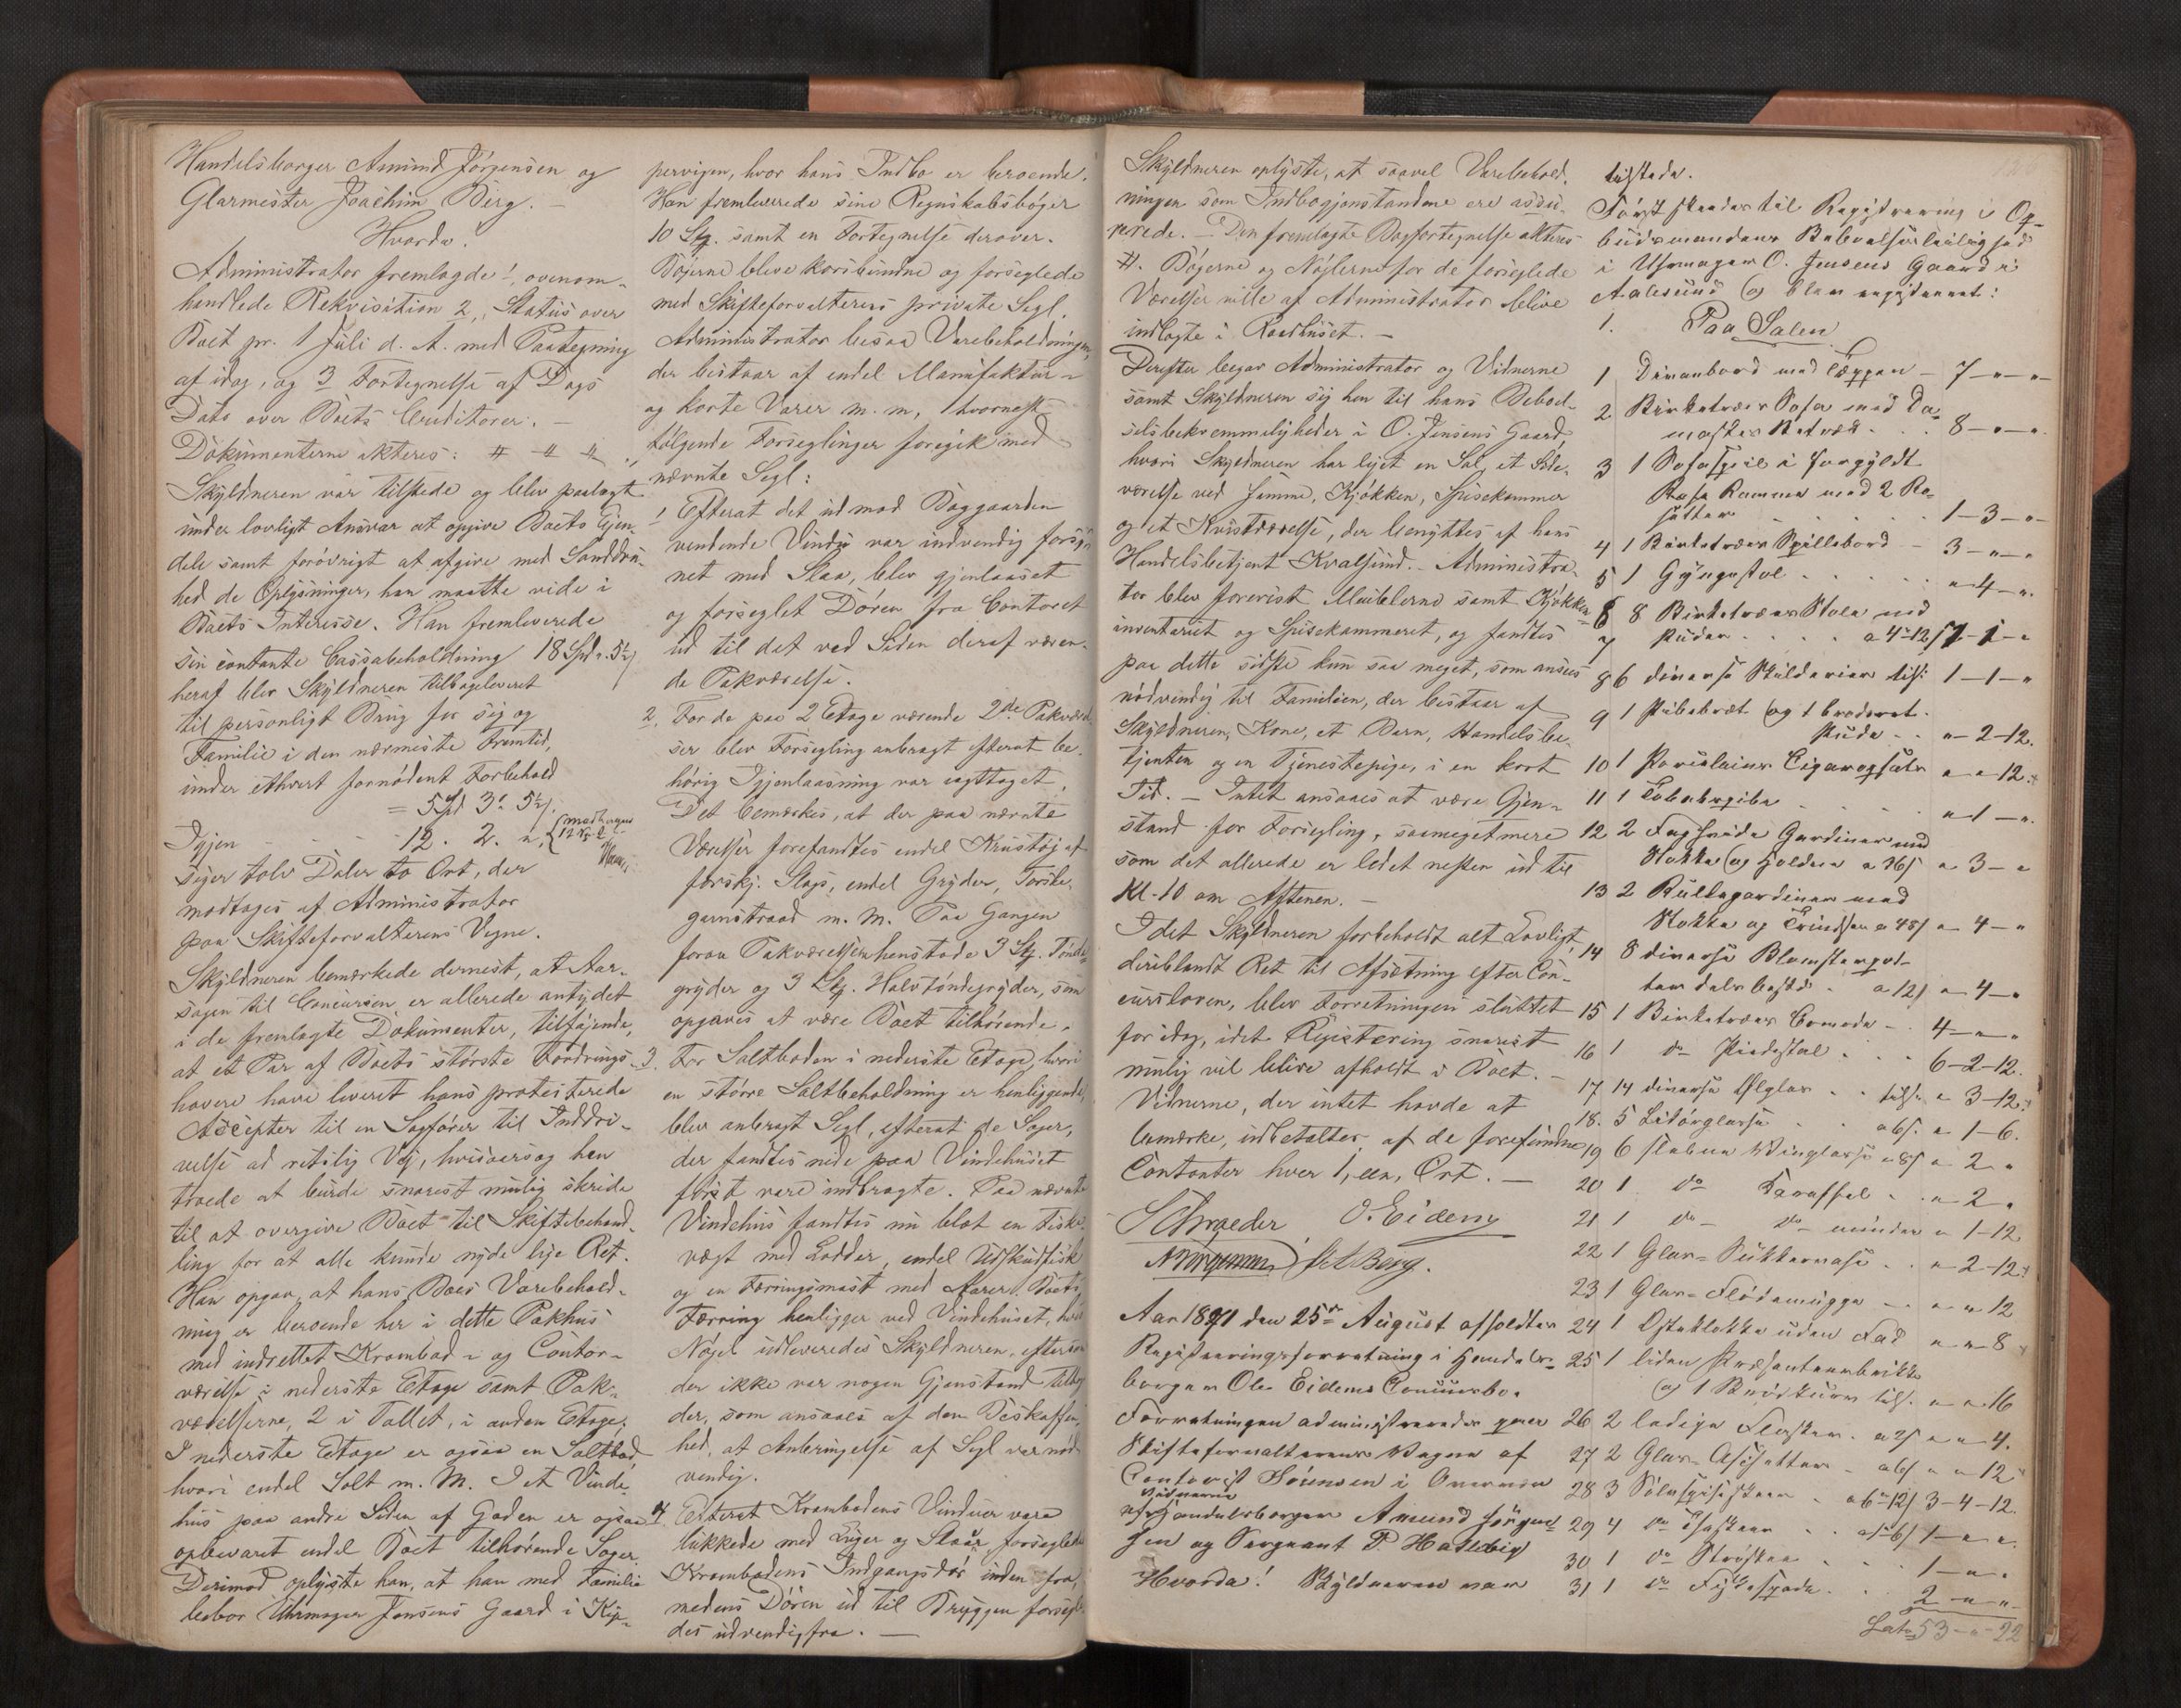 Handelsborger Amund Jörgensen og
Glarmester Joachim Berg. —
Hvorda.
Administrator fremlagde 1, ovenom-
handlede Rekvisition 2, Status over
Boet pr. 1 Juli d. A. med Paategning
af idag, og 3 Fortegnelse af Dags
Dato over Boets Creditorer. —
Dokumenterne akteres: # # #
Skyldneren var tilstede og blev paalagt
under lovligt Ansvar at opgive Boets Ejen-
dele samt forövrigt at afgive med Sanddru-
hed de Oplysninger, han maatte vide i
Boets Interesse. Han fremleverede
sin contante Cassabeholdning 18 Spd. " 5 1/2 /
heraf blev Skyldneren tilbageleveret
til personligt Brug for sig og
Familie i den nærmeste Fremtid,
under ethvert fornödent Forbehold
= 5 Spd 3 " 5 1/2 /
Igjen - - 12. 2. ",
siger tolv Daler to Ort, der
modtages af Administrator
paa Skifteforvalterens Vegne.
Skyldneren bemærkede dernest, at Aar-
sagen til Concursen er allerede antydet
i de fremlagte Dokumenter, tilföjende,
at et Par af Boets störste Fordrings-
havere have leveret hans protesterede
Accepter til en Sagförer til Inddri-
velse ad retslig Vej, hvisaarsag han
troede at burde snarest mulig skride
til at overgive Boet til Skiftebehand-
ling for at alle kunde nyde lige Ret.
Han opgav, at hans Boes Varebehold-
ning er beroende her i dette Pakhus
med indrettet Krambod- og Contor-
værelse i nederste Etage samt Pak-
værelserne, 2 i Tallet, i anden Etage;
I nederste Etage er ogsaa en Saltbod
hvori endel Salt m. M. I et Vinde-
hus paa andre Siden af Gaden er ogsaa
opbevaret endel Boet tilhörende Sager.
Derimod oplyste han, at han med Familie
bebor Uhrmager Jensens Gaard i Kip-
pervigen, hvor hans Indbo er beroende.
Han fremleverede sine Regnskabsböger
10 Stk. samt en Fortegnelse derover.
Bögerne bleve korsbundne og forseglede
med Skifteforvalterens private Segl.
Administrator besaa Varebeholdningen,
der bestaar af endel Manufaktur-
og korte Varer m. m, hvornest
fölgende Forseglinger foregik med
nævnte Segl:
1 Efterat det ud mod Baggaarden
vendende Vindu var indvendig forsy-
net med Slaa, blev gjenlaaset
og forseglet Dören fra Contoret
ud til det ved Siden deraf væren-
de Pakværelse.
2. For de paa 2 Etage værende 2de Pakværel-
ser blev Forsegling anbragt efterat be-
hörig Igjenlaasning var iagttaget.
Det bemærkes, at der paa nævnte
Værelser forefandtes endel Krustöj af
forskj. Slags, endel Gryder, Torske-
garnstraad m. M. Paa Gangen
foran Pakværelserne henstode 3 Stk. Tönde-
gryder og 3 Stk. Halvtöndegryder, som
opgaves at være Boet tilhörende.
3. For Saltboden i nederste Etage, hvori
en större Saltbeholdning er henliggende,
blev anbragt Segl, efterat de Sager,
der fandtes nede paa Vindehuset
först vare indbragte. Paa nævnte
Vindehus fandtes nu blot en Fiske-
vægt med Lodder, endel Udskudfisk
og en Færringsmast med Aarer. Boets
Færring henligger ved Vindehuset, hvis
Nögel udleveredes Skyldneren, eftersom
der ikke var nogen Gjenstand tilbage
der, som ansaaes af den Beskaffen-
hed, at Anbringelse af Segl var nöd-
vendig.
4. Efterat Krambodens Vinduer vare
lukkede med Luger og Slaaer, forsegledes
Krambodens Indgangsdör inden fra,
medens Dören ud til Bryggen forsegle-
des udvendigfra. —
Skyldneren oplyste, at saavel Varebehold-
ningen som Indbogjenstandene ere assu-
rerede. — Den fremlagte Bogfortegnelse akteres
#. Bögerne og Nöglerne for de forseglede
Værelser ville af Administrator blive
indlagte i Raadhuset. —
Derefter begav Administrator og Vidnerne
samt Skyldneren sig hen til hans Beboel-
selsbekvemmeligheder i O. Jensens Gaard,
hvori Skyldneren har lejet en Sal, et Side-
værelse ved Samme, Kjökken, Spisekammer
og et Kvistværelse, der benyttes af hans
Handelsbetjent Kvalsund. — Administra-
tor blev forevist Meublerne samt Kjökken-
inventariet og Spisekammeret, og fandtes
paa dette sidste kun saa meget, som ansees
nödvendig til Familien, der bestaar af
Skyldneren, Kone, et Barn, Handelsbe-
tjenten og en Tjenestepige, i en kort
Tid. — Intet ansaaes at være Gjen-
stand for Forsegling, saameget mere
som det allerede er ledet nesten ud til
Kl. 10 om Aftenen. —
Idet Skyldneren forbeholdt alt Lovligt,
deriblandt Ret til Afsætning efter Con-
cursloven, blev Forretningen sluttet
for idag, idet Registrering snarest
mulig vil blive afholdt i Boet. —
Vidnerne, der intet havde at
bemærke, udbetaltes af de forefundne
Contanter hver 1, een, Ort. —
Schroeder O. Eidem
A Jörgensen J. A Berg.
Aar 1871 den 25de August afholdtes
Registreringsforretning i Handels-
borger Ole Eidems Concursbo.
Forretningen administreredes paa
Skifteforvalterens Vegne af
Contorist Sörensen i Overvær
Vidnerne
af Handelsborger Amund Jörgen-
sen og Sergeant P. Hallevig
Hvorda! Skyldneren var
tilstede.
Först skeeder til Registrering i Op-
budsmandens Beboelsesleilighed
i Uhrmager O. Jensens Gaard i
Aalesund og blev registreret:
1. Paa Salen
1 Divanbord med Tæppe — 7 — " — "
2 Birketræes Sofa med Da-
maskes Betræk . . 8 — " — "
3 1 Sofaspeil i forgyldt
Ramme med 2 Ro-
setter . . . 1 — 3 — "
4 1 Birketræes Spillebord — 3 — " — "
5 1 Gyngestol . . . " 4 — "
6 8 Birketræes Stole med
7 Puder . . . a 4-12/ 7 — 1 — "
8 6 diverse Skilderier tils: 1 — 1 — "
9 1 Pibebræt og 1 broderet
Pude . . " — 2 — 12.
10 1 Porcelains Cigaropsats " " 12.
11 1 Tobakspibe . . . " 1 — "
12 2 Fag hvide Gardiner med
Stokke og Holdere a 36/ " 3 — "
13 2 Rullegardiner med
Stokke og Trindser a 48/ " 4 — "
14 8 diverse Blomsterpot-
ter dels beste . a 12/ " 4 — "
15 1 Birketræes Comode — . 4 — " — "
16 1 do Piedestal . . . 6 — 2 — 12.
17 14 diverse Ølglas . . tils. " 3 — 12.
18. 5 Liqörglasse . . a 6/. " 1 — 6.
19 6 slebne Vinglasse a 8/ " 2 "
20 1 do Karaffel . . " 2 "
21 1 do — do mindre " 1 — 12
22 1 Glas-Sukkervase . . " 2 — 12.
23 1 Glas-Flödemugge — " " 12
24 1 Osteklokke uden Fad " " 8
25 1 liden Præsenteerbrikke
og 1 Brödkurv tils. " " 16
26 2 ledige Flasker. a 2/ " " 4.
27 2 Glas-Assietter — a 6/ " " 12
28 3 Sölvspiseskeer . a 6-12/ 3 — 4 — 12.
29 4 do Theskeer . . 1 — " "
30 1 do Ströskee . . . 1 — " .
31 1 do Fiskespade . . 2 — " "
Lat. 53 — " — 22